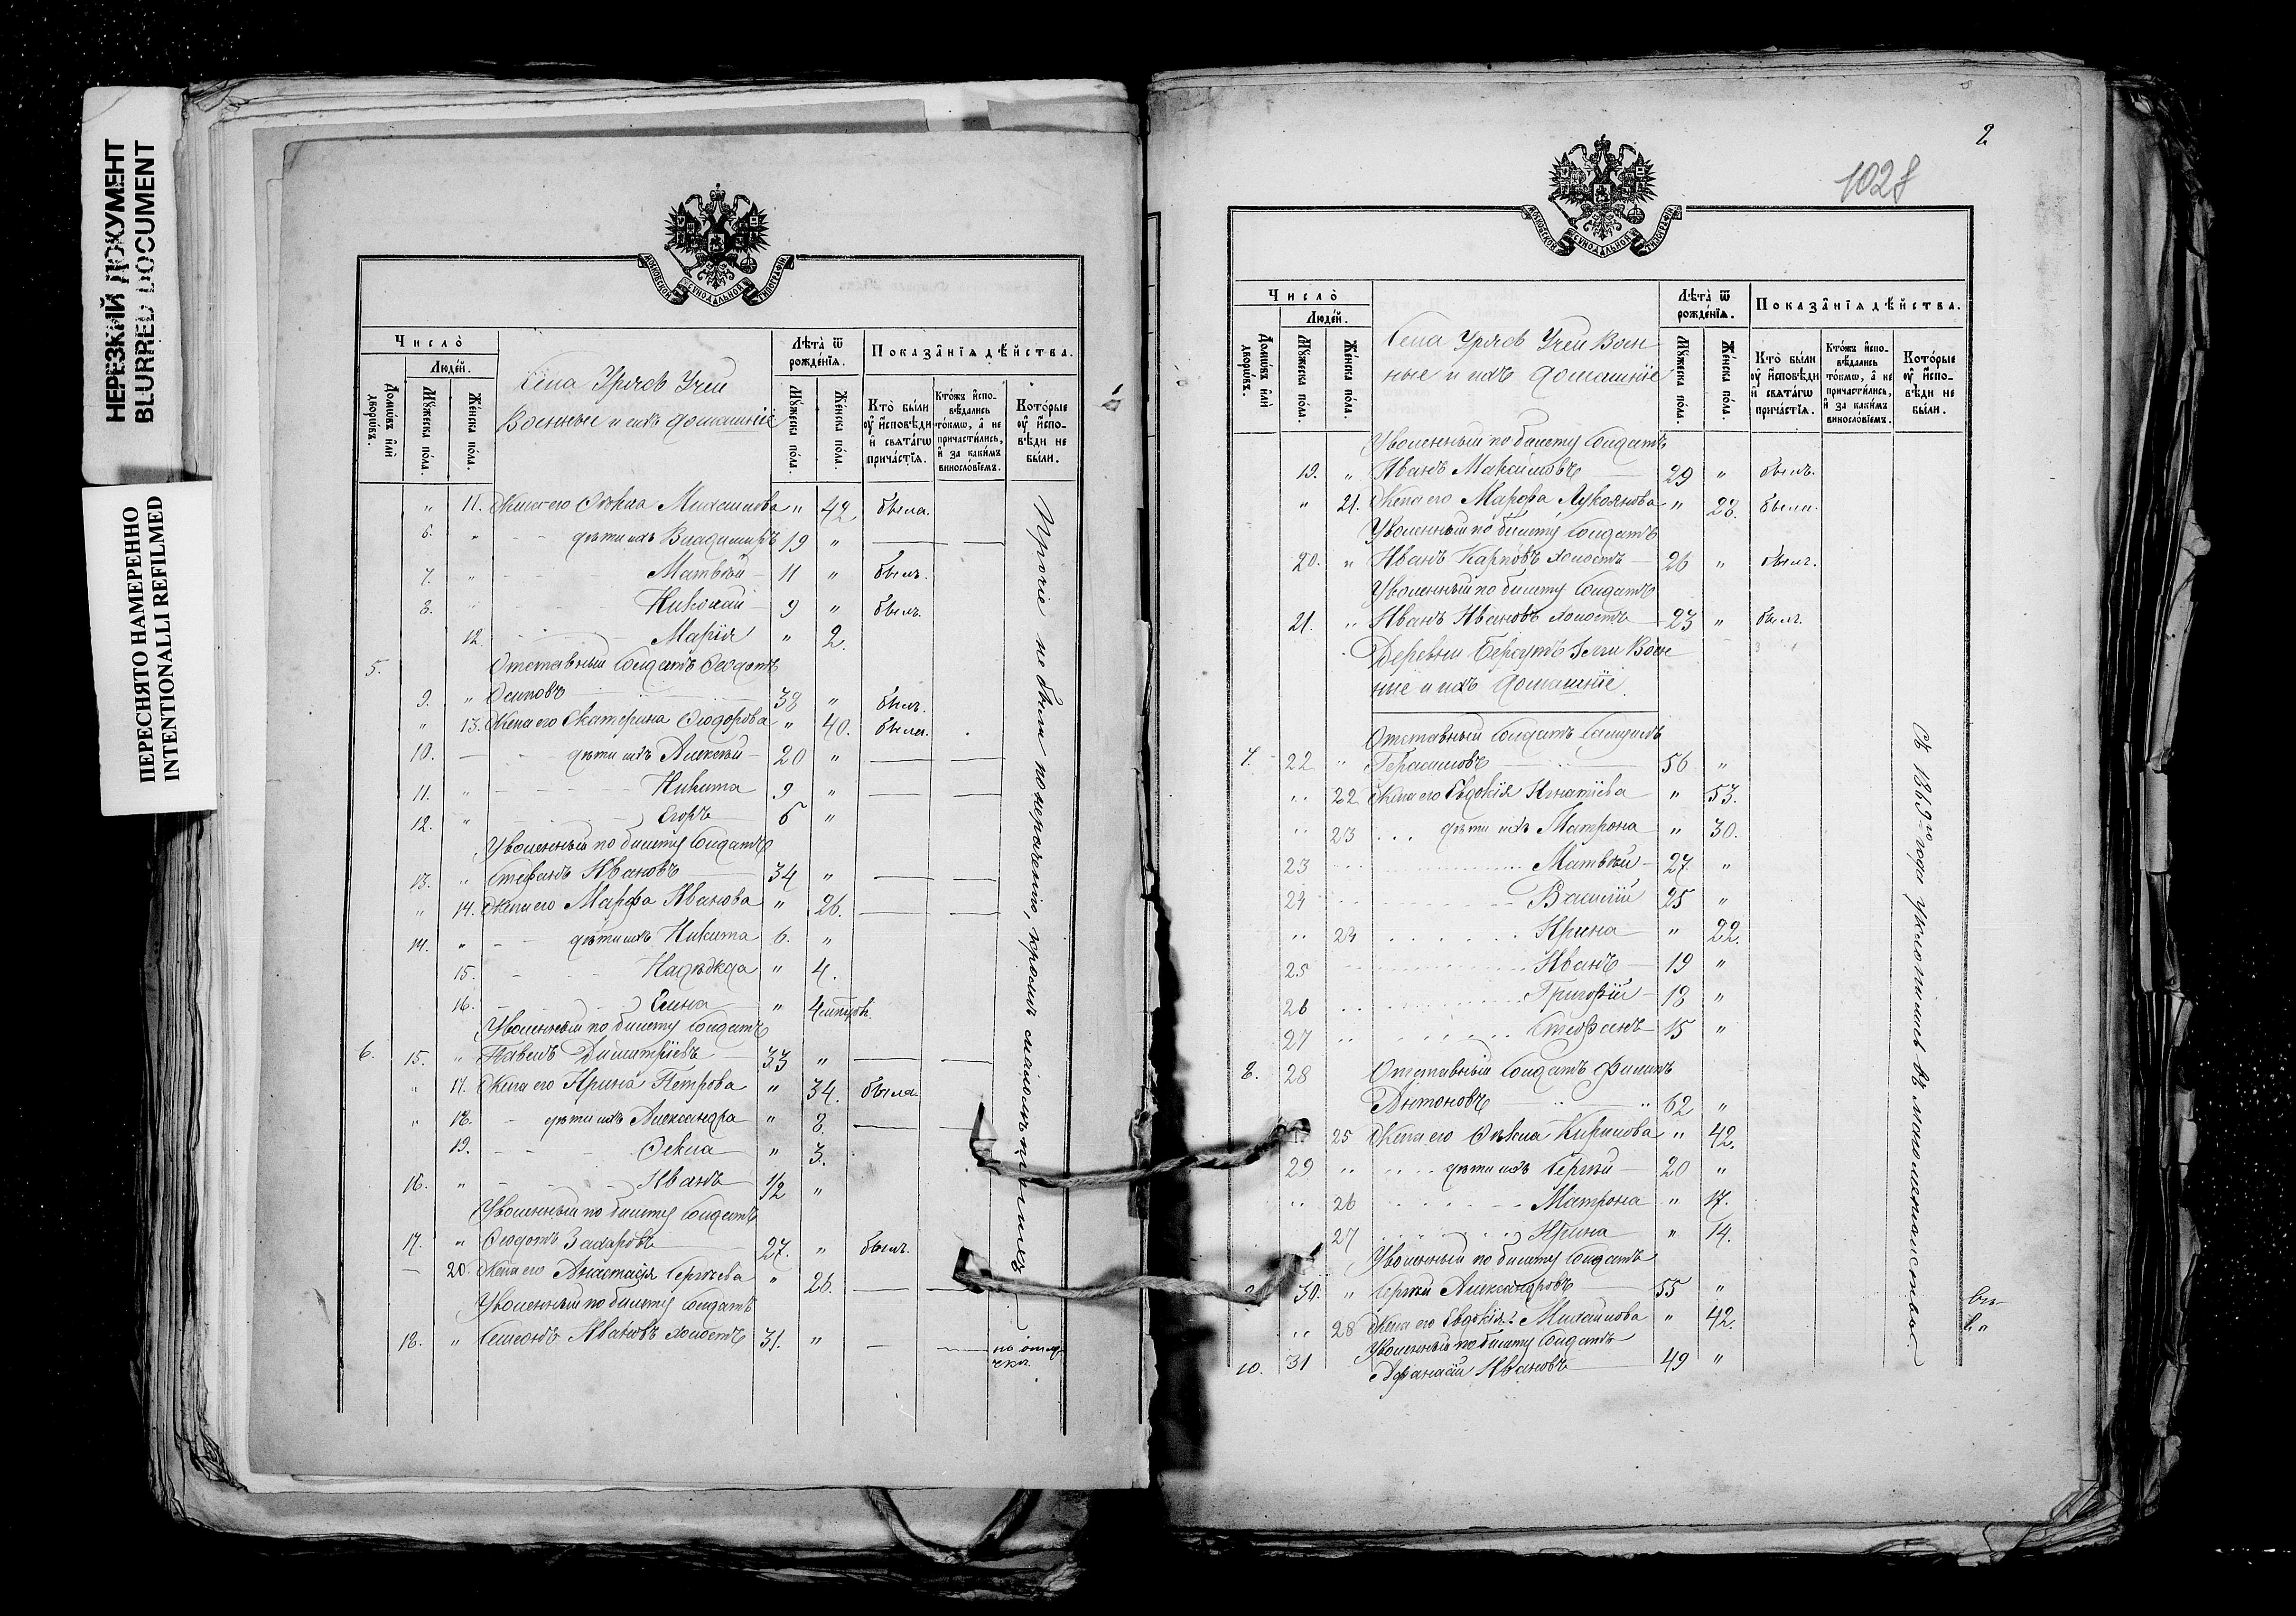 НЕРЕЗКИЙ ДОКУМЕНТ
BLURRED DOCUMENT
ПЕРЕСНЯТО НАМЕРЕННО
INTENTIONALLI REFILMED
МОСКОВСКОЙ СѴНОДАЛЬНОЙ ТИПОГРАФІИ
Число̀
Людей.
Домѡвъ и҆лѝ дворѡвъ.
Мꙋжеска пола.
Женска пола.
Села Урядов Учии
Военные и ихъ домашніе
Лѣта̀ ѿ рожденїѧ.
Мꙋжеска пола.
Женска пола.
Показанїѧ дѣйства.
Кто̀ были оу҆ и҆сповѣди и҆ свѧтагѡ причастїѧ.
Ктожъ и҆сповѣдались токмѡ, а҆ не причастились, и҆ за какимъ винословїемъ.
Которые оу҆ и҆сповѣди не были.
" 11. Жена его Ѳекла Михаилова " 42 была.
6. " дѣти ихъ Владимиръ 19 " — —
7. " Матвѣй 11 " былъ.
8. " Николай 9 " былъ.
12. Марія " 2.
5. Отставный Солдатъ Ѳеодотъ
9. " Осиповъ 38 " былъ.
" 13. Жена его Екатерина Ѳеодорова " 40. была.
10. — дѣти ихъ Алексѣй 20 " — —
11. " Никита 9 " — —
12. " Егоръ 6 "
Уволенный по билету Солдатъ
13. " Стефанъ Ивановъ 34 " — —
" 14. Жена его Марфа Иванова " 26. — —
14. " дѣти ихъ Никита 6. "
15. Надежда " 4.
16. Елена "
Уволенный по билету Солдатъ
6. 15. " Павелъ Димитріевъ 33 " — —
" 17. Жена его Ирина Петрова " 34. была.
" 18. дѣти ихъ Александра " 8. — —
19. Ѳекла " 3.
16. " Иванъ 1/2 "
Уволенный по билету Солдатъ
17. " Ѳеодотъ Захаровъ 27. " былъ.
— 20. Жена его Анастасія Сергѣева " 26. — —
Уволенный по билету Солдатъ
18. " Семеонъ Ивановъ холостъ 31. " — —
по отлучкѣ.
Прочіе не были по нераченію, кромѣ малолѣтнихъ
2
1028
МОСКОВСКОЙ СѴНОДАЛЬНОЙ ТИПОГРАФІИ
Число̀
Людей.
Домѡвъ и҆лѝ дворѡвъ.
Мꙋжеска пола.
Женска пола.
Села Урядов Учеи Воен
ные и ихъ домашніе
Лѣта̀ ѿ рожденїѧ.
Мꙋжеска пола.
Женска пола.
Показанїѧ дѣйства.
Кто̀ были оу҆ и҆сповѣди и҆ свѧтагѡ причастїѧ.
Ктожъ и҆сповѣдались токмѡ, а҆ не причастились, и҆ за какимъ винословїемъ.
Которые оу҆ и҆сповѣди не были.
Уволенный по билету Солдатъ
19. " Иванъ Максимовъ 29 " былъ.
" 21. Жена его Марфа Лукоянова " 28. была.
Уволенный по билету Солдатъ
20. " Иванъ Карповъ холостъ 26 " былъ.
Уволенный по билету Солдатъ
21. " Иванъ Ивановъ холостъ 23 " былъ.
Деревни Воен
ные и ихъ домашніе
Отставный Солдатъ
7. 22 " Герасимовъ 56 "
" 22 Жена его Евдокія Игнатіева " 53.
" 23 дѣти ихъ Матрона " 30.
23 Матвѣй 27 "
24 Василій 25 "
" 24 Ирина " 22.
25 Иванъ 19 "
26 Григорій 18 "
27 Стефанъ 15 "
8. 28 Отставный Солдатъ Филипъ
Антоновъ 62 "
25 Жена его Ѳекла Кирилова " 42.
29 " дѣти ихъ Сергѣй 20 "
" 26 Матрона " 17.
27 Ирина " 14.
Уволенный по билету Солдатъ
30. " Сергѣй Александровъ 55 "
" 28 Жена его Евдокія Михаилова " 42.
Уволенный по билету Солдатъ
10. 31 Афанасій Ивановъ 49 "
Съ 1869го года уклонились въ